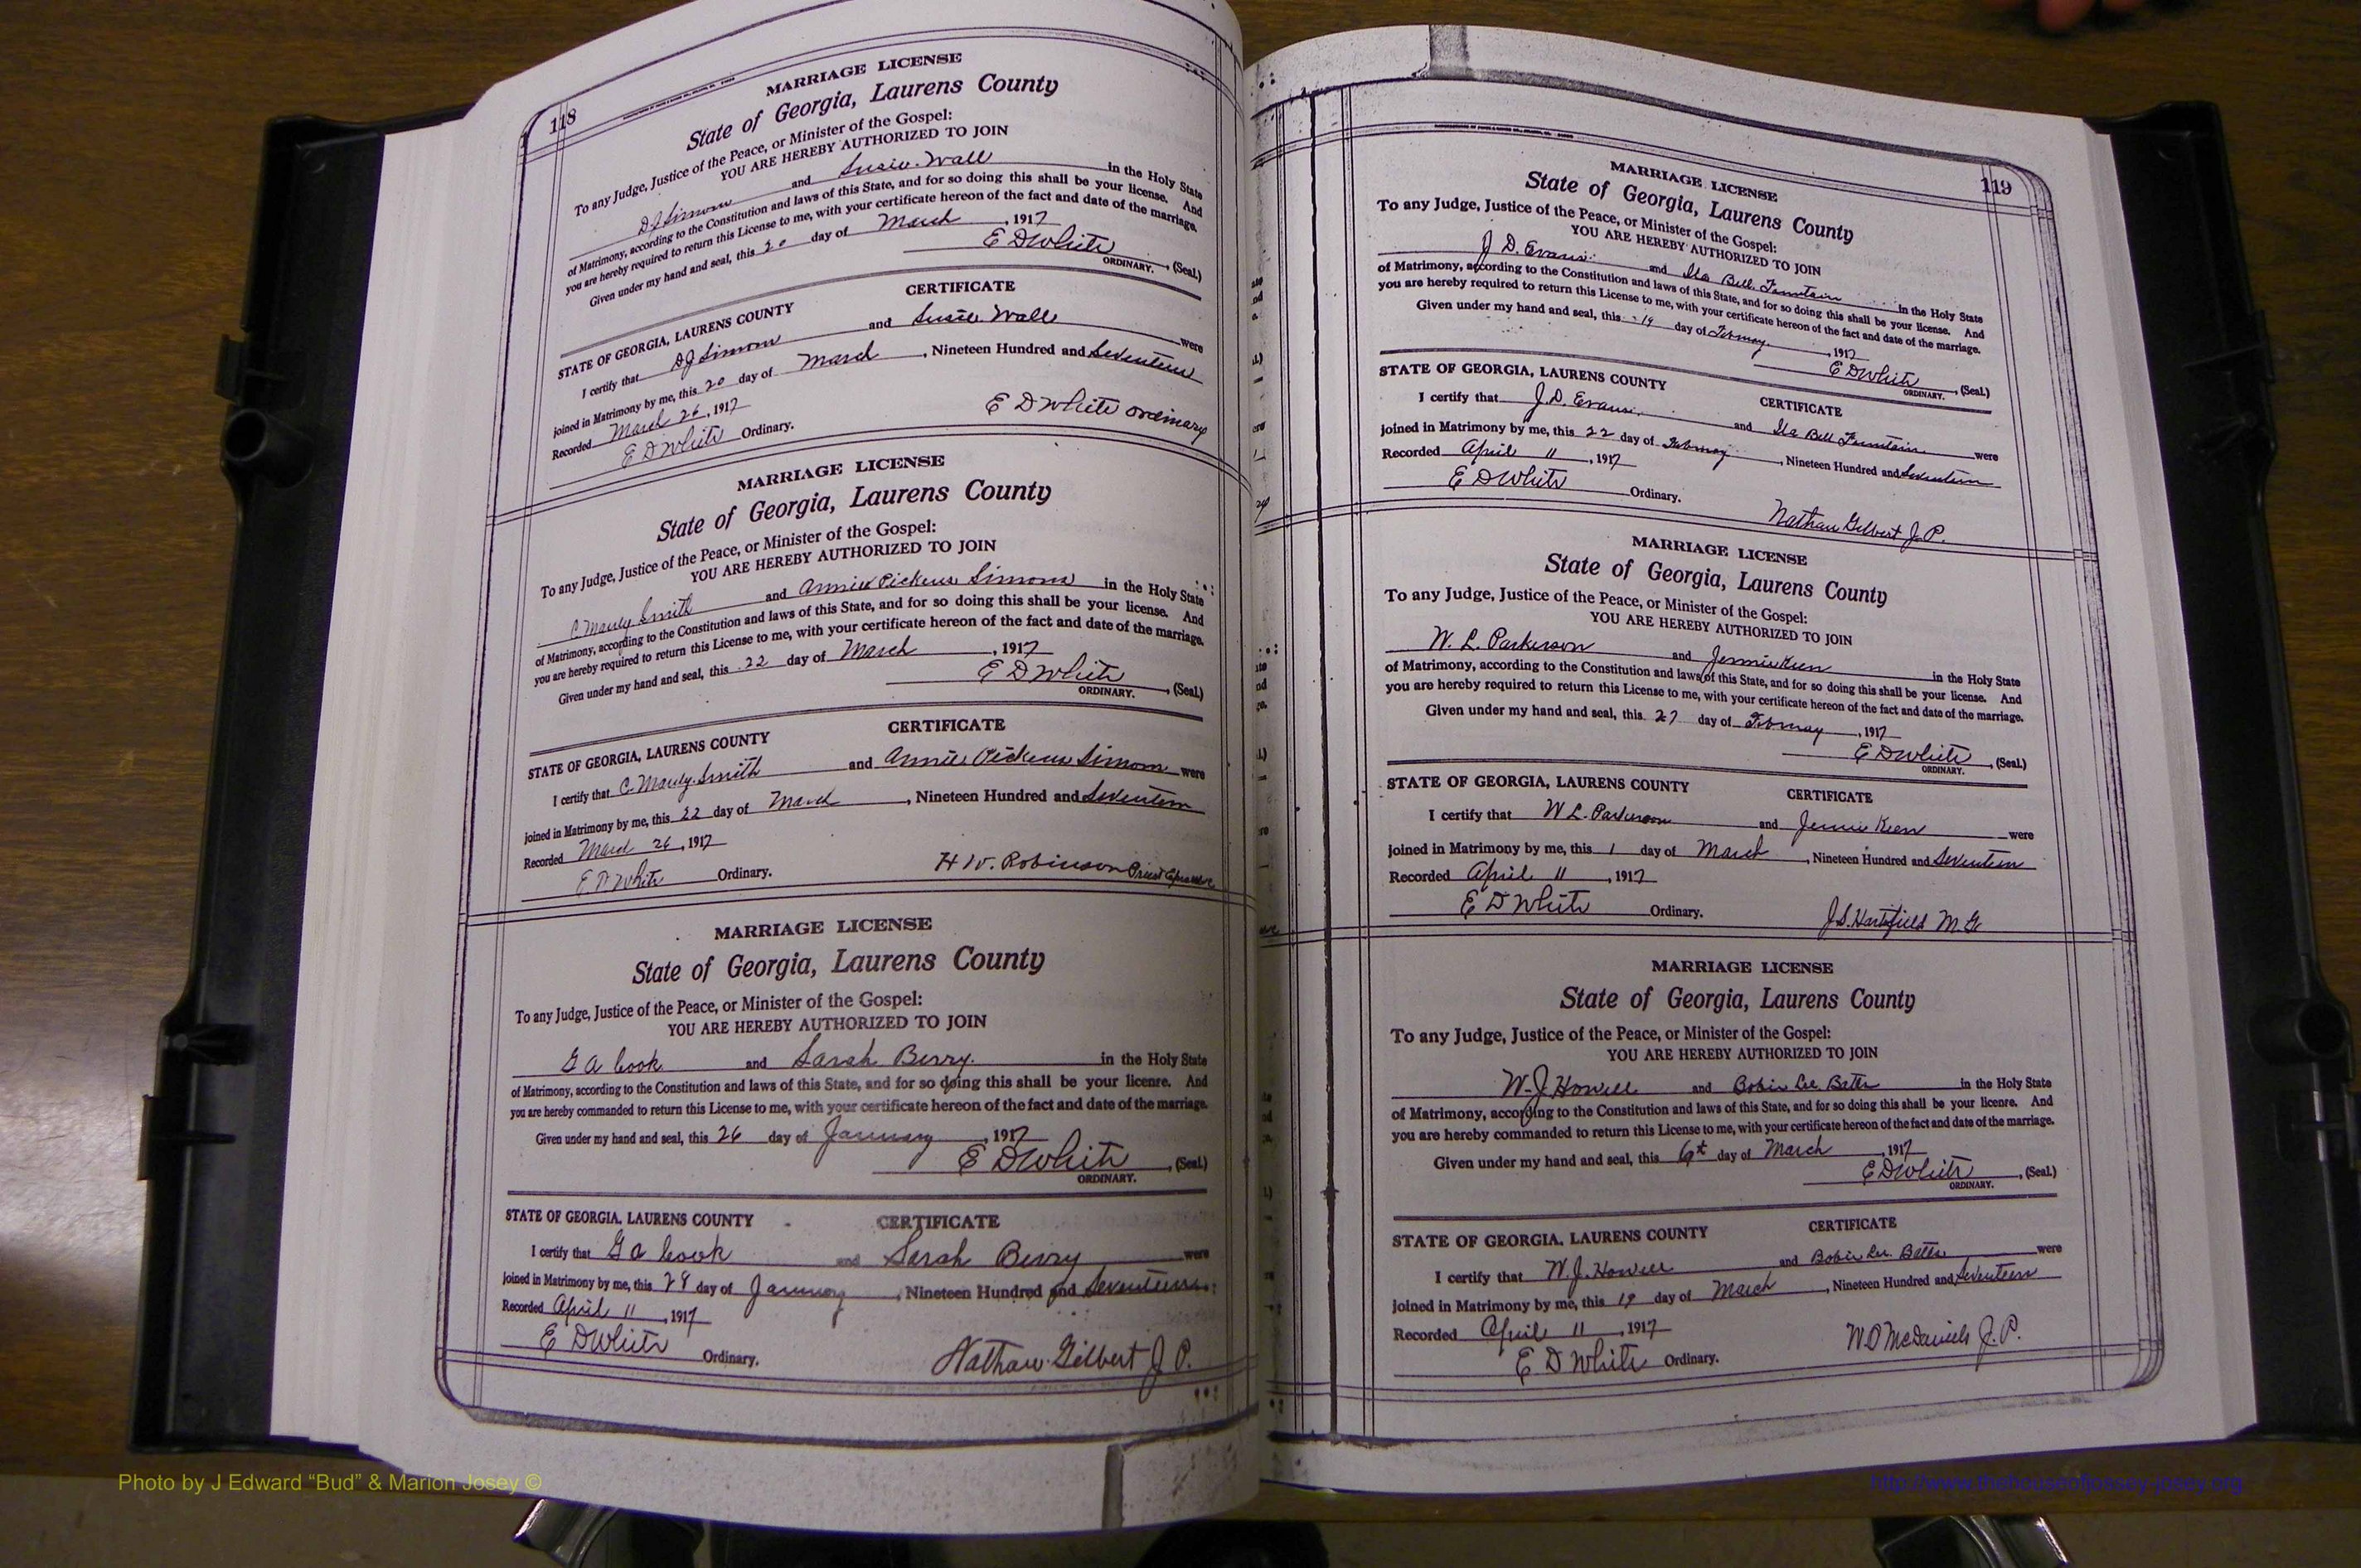 118
MARRIAGE LICENSE
State of Georgia, Laurens County
To any Judge, Justice of the Peace, or Minister of the Gospel:
YOU ARE HEREBY AUTHORIZED TO JOIN
D J Simom and Susie Wall in the Holy State
of Matrimony, according to the Constitution and laws of this State, and for so doing this shall be your license. And
you are hereby required to return this License to me, with your certificate hereon of the fact and date of the marriage.
Given under my hand and seal, this 20 day of March, 1917
E D White, (Seal.)
ORDINARY.
CERTIFICATE
STATE OF GEORGIA, LAURENS COUNTY
I certify that D J Simom and Susie Wall were
joined in Matrimony by me, this 20 day of March, Nineteen Hundred and Seventeen
Recorded March 26, 1917
E D White Ordinary.
E D White ordinary
MARRIAGE LICENSE
State of Georgia, Laurens County
To any Judge, Justice of the Peace, or Minister of the Gospel:
YOU ARE HEREBY AUTHORIZED TO JOIN
C Smith and Annie Pickens Simons in the Holy State
of Matrimony, according to the Constitution and laws of this State, and for so doing this shall be your license. And
you are hereby required to return this License to me, with your certificate hereon of the fact and date of the marriage.
Given under my hand and seal, this 22 day of March, 1917
E D White, (Seal.)
ORDINARY.
CERTIFICATE
STATE OF GEORGIA, LAURENS COUNTY
I certify that C. Smith and Annie Pickens Simom were
joined in Matrimony by me, this 22 day of March, Nineteen Hundred and Seventeen
Recorded March 26, 1917
E D White Ordinary.
H W. Robinson Priest
MARRIAGE LICENSE
State of Georgia, Laurens County
To any Judge, Justice of the Peace, or Minister of the Gospel:
YOU ARE HEREBY AUTHORIZED TO JOIN
G A Cook and Sarah Berry. in the Holy State
of Matrimony, according to the Constitution and laws of this State, and for so doing this shall be your licenre. And
you are hereby commanded to return this License to me, with your certificate hereon of the fact and date of the marriage.
Given under my hand and seal, this 26 day of January, 1917
E D White, (Seal.)
ORDINARY.
STATE OF GEORGIA. LAURENS COUNTY CERTIFICATE
I certify that G A Cook and Sarah Berry were
joined in Matrimony by me, this 28 day of January, Nineteen Hundred and Seventeen
Recorded April 11, 1917
E D White Ordinary.
Nathan Gilbert J. P.
119
MARRIAGE LICENSE
State of Georgia, Laurens County
To any Judge, Justice of the Peace, or Minister of the Gospel:
YOU ARE HEREBY AUTHORIZED TO JOIN
J D. Evans and Ila Bell Fountain in the Holy State
of Matrimony, according to the Constitution and laws of this State, and for so doing this shall be your license. And
you are hereby required to return this License to me, with your certificate hereon of the fact and date of the marriage.
Given under my hand and seal, this 19 day of February, 1917
E D White, (Seal.)
ORDINARY.
STATE OF GEORGIA, LAURENS COUNTY
CERTIFICATE
I certify that J. D. Evans and Ila Bell Fountain were
joined in Matrimony by me, this 22 day of February, Nineteen Hundred and Seventeen
Recorded April 11, 1917
E D White Ordinary.
Nathan Gilbert J. P.
MARRIAGE LICENSE
State of Georgia, Laurens County
To any Judge, Justice of the Peace, or Minister of the Gospel:
YOU ARE HEREBY AUTHORIZED TO JOIN
W. L. Parkerson and Jennie Keen in the Holy State
of Matrimony, according to the Constitution and laws of this State, and for so doing this shall be your license. And
you are hereby required to return this License to me, with your certificate hereon of the fact and date of the marriage.
Given under my hand and seal, this 27 day of February, 1917
E D White, (Seal.)
ORDINARY.
STATE OF GEORGIA, LAURENS COUNTY
CERTIFICATE
I certify that W L. Parkerson and Jennie Keen were
joined in Matrimony by me, this 1 day of March, Nineteen Hundred and Seventeen
Recorded April 11, 1917
E D White Ordinary.
J. S. Hartsfield M. G.
MARRIAGE LICENSE
State of Georgia, Laurens County
To any Judge, Justice of the Peace, or Minister of the Gospel:
YOU ARE HEREBY AUTHORIZED TO JOIN
W. J Howell and Bobie Lee Batts in the Holy State
of Matrimony, according to the Constitution and laws of this State, and for so doing this shall be your licenre. And
you are hereby commanded to return this License to me, with your certificate hereon of the fact and date of the marriage.
Given under my hand and seal, this 6st day of March, 1917
E D White, (Seal.)
ORDINARY.
STATE OF GEORGIA. LAURENS COUNTY
CERTIFICATE
I certify that W. J. Howell and Bobie Lee Batts were
joined in Matrimony by me, this 19 day of March, Nineteen Hundred and Seventeen
Recorded April 11, 1917
E D White Ordinary.
W D McDaniels J. P.
Photo by J Edward “Bud” & Marion Josey ©
http://www.thehouseofjossey-josey.org